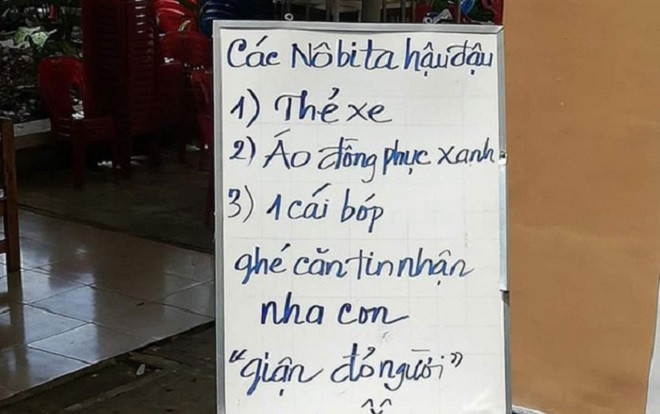 Các Nôbita hậu đậu
1) Thẻ xe
2) Áo đồng phục xanh
3) 1 cái bóp
ghé căn tin nhận
nha con
"giận đỏ người"
^^